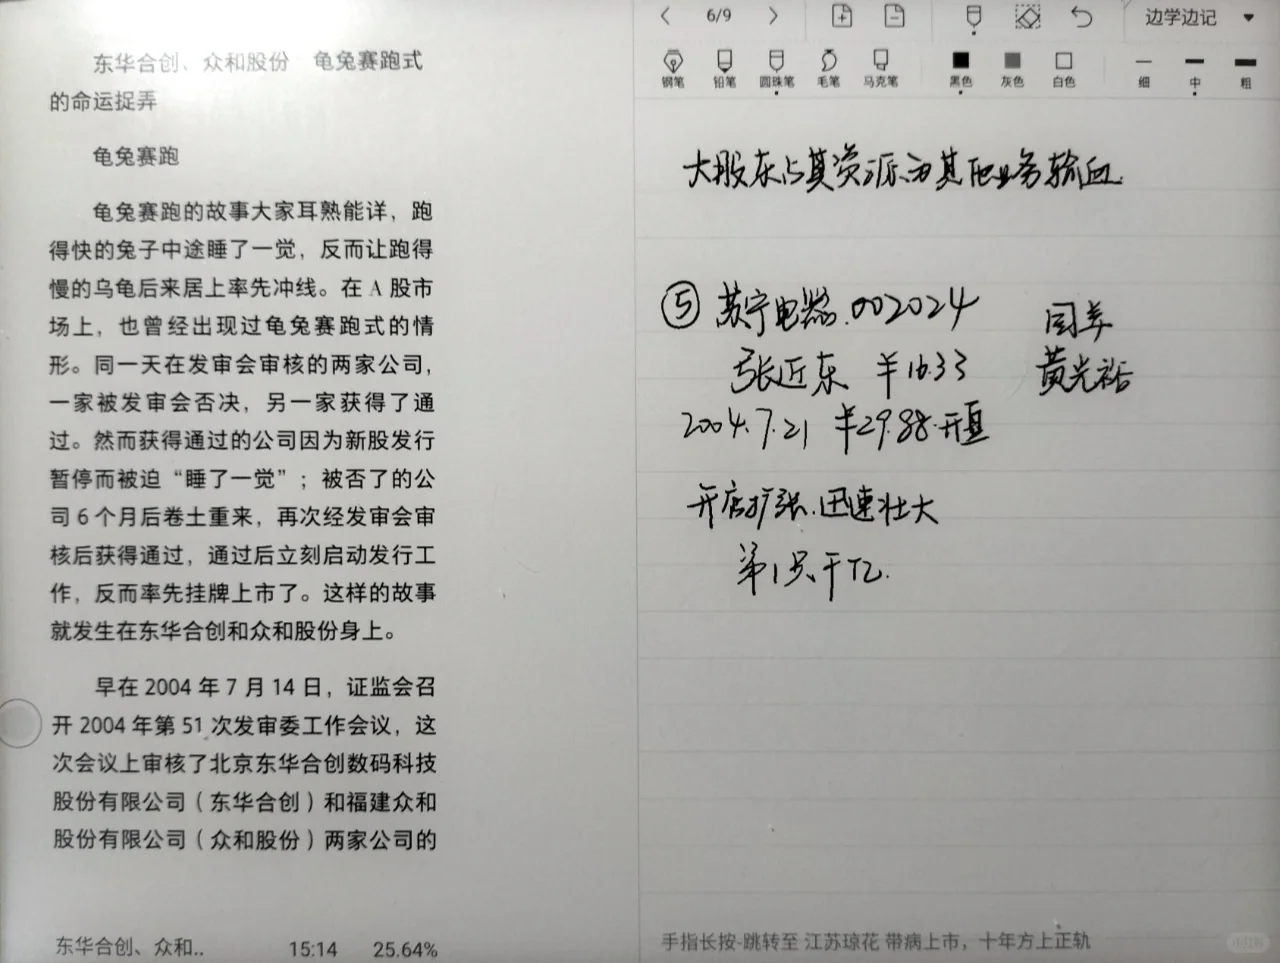 东华合创、众和股份　龟兔赛跑式
的命运捉弄
龟兔赛跑
龟兔赛跑的故事大家耳熟能详，跑
得快的兔子中途睡了一觉，反而让跑得
慢的乌龟后来居上率先冲线。在 A 股市
场上，也曾经出现过龟兔赛跑式的情
形。同一天在发审会审核的两家公司，
一家被发审会否决，另一家获得了通
过。然而获得通过的公司因为新股发行
暂停而被迫“睡了一觉”；被否了的公
司 6 个月后卷土重来，再次经发审会审
核后获得通过，通过后立刻启动发行工
作，反而率先挂牌上市了。这样的故事
就发生在东华合创和众和股份身上。
早在 2004 年 7 月 14 日，证监会召
开 2004 年第 51 次发审委工作会议，这
次会议上审核了北京东华合创数码科技
股份有限公司（东华合创）和福建众和
股份有限公司（众和股份）两家公司的
东华合创、众和..
15:14
25.64%
6/9
边学边记
钢笔 铅笔 圆珠笔 毛笔 马克笔 黑色 灰色 白色 细 中 粗
大股东占其资源为其他业务输血
⑤ 苏宁电器.002024
国美
张近东 ￥16.33
黄光裕
2004.7.21 ￥29.88.开盘
开店扩张.迅速壮大
第1只千亿.
手指长按-跳转至 江苏琼花 带病上市，十年方上正轨